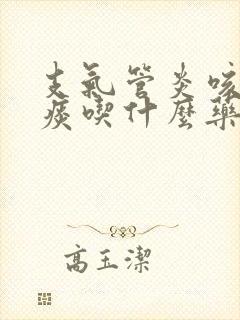 支氣管炎咳
痰喫什麼藥
高玉潔